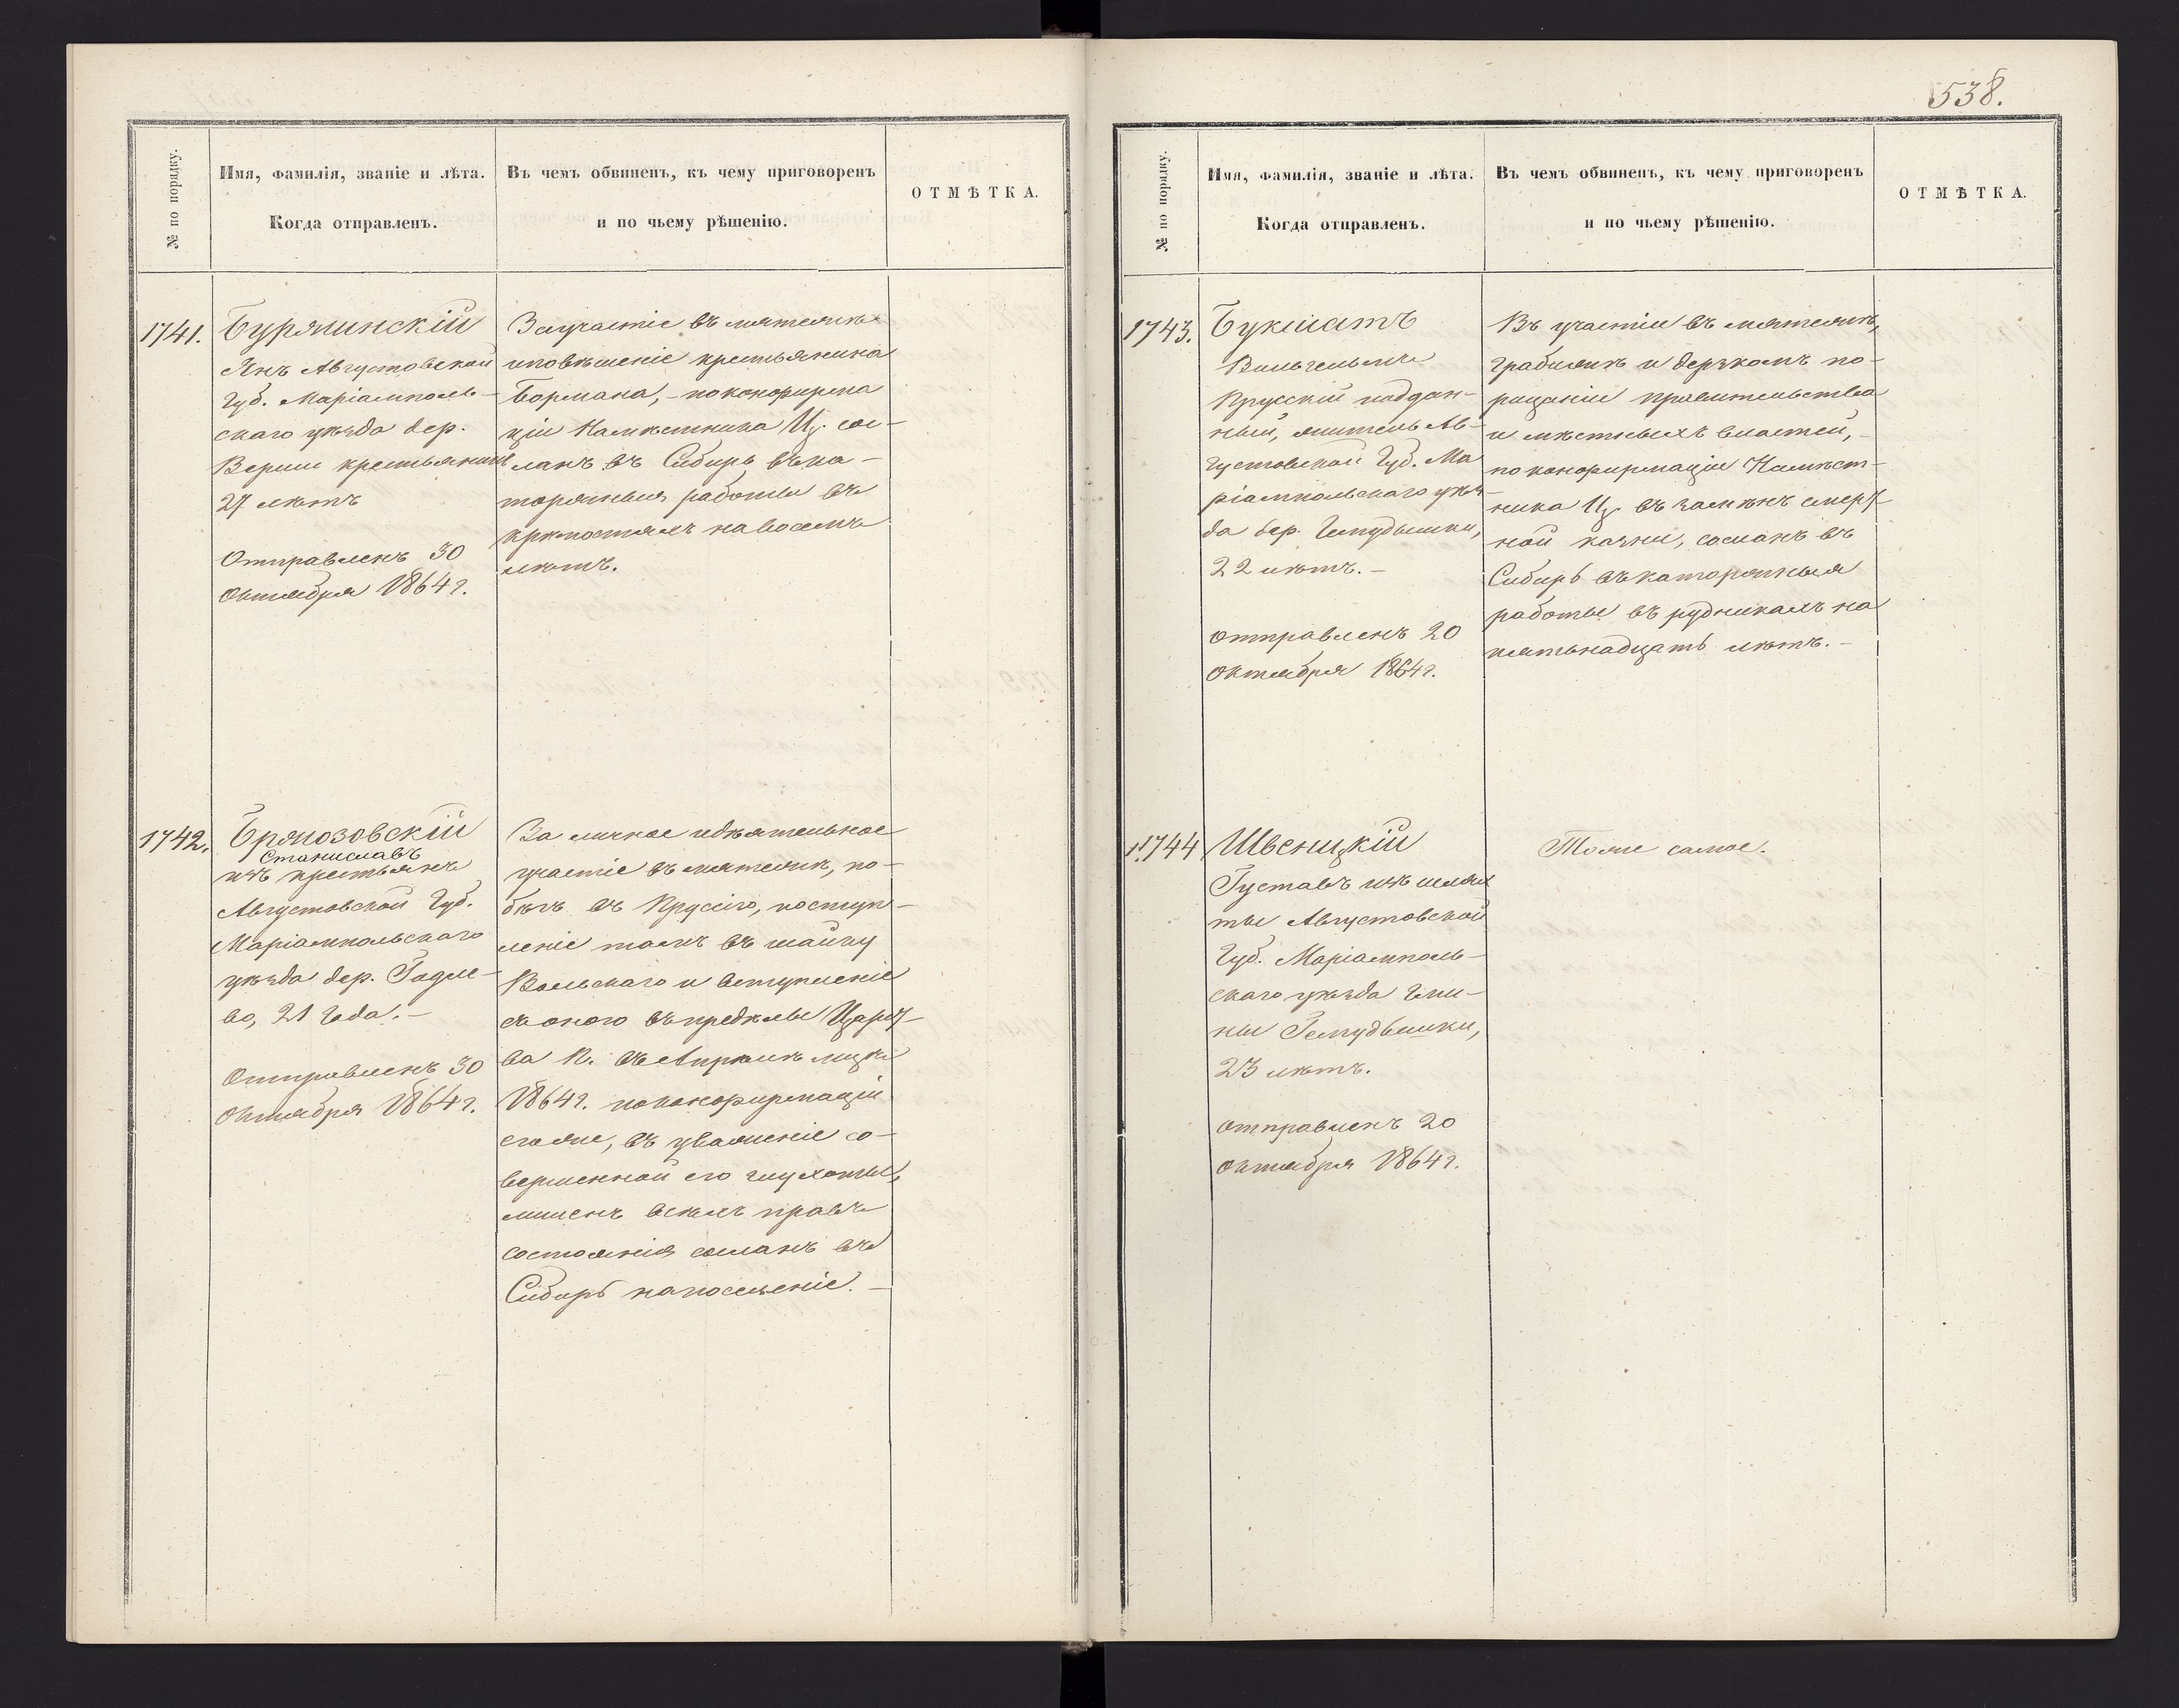 538.
№ по порядку.
Имя, фамилія, званіе и лѣта.
Когда отправленъ.
Въ чемъ обвиненъ, къ чему приговоренъ
и по чьему рѣшенію.
ОТМѢТКА.
1741.
Бурминскій
Янъ Августовской
Губ. Маріамполь-
скаго уѣзда дер.
Верши крестьянинъ
27 лѣтъ
Отправленъ 30
Октября 1864 г.
За участіе въ мятежѣ
и повѣшеніе крестьянина
Бормана, - по конфирма
ціи Намѣстника Ц. сос-
ланъ въ Сибирь въ ка-
торжныя работы въ
крѣпостяхъ на восемь
лѣтъ.
1742.
Брзозовскій
Станиславъ
изъ крестьянъ
Августовской Губ.
Маріампольскаго
уѣзда дер. Годле-
во, 21 года. -
Отправленъ 30
Октября 1864 г.
За личное и дѣятельное
участіе въ мятежѣ, по-
бѣгъ въ Пруссію, поступ-
леніе тамъ въ шайку
Вольскаго и вступленіе
съ оною въ предѣлы Царст-
ва П. въ Апрѣлѣ мцѣ
1864 г. по конфирмаціи
егоже, въ уваженіе со-
вершенной его глухоты,
лишенъ всѣхъ правъ
состоянія сосланъ въ
Сибирь на поселеніе. -
№ по порядку.
Имя, фамилія, званіе и лѣта.
Когда отправленъ.
Въ чемъ обвиненъ, къ чему приговоренъ
и по чьему рѣшенію.
ОТМѢТКА.
1743.
Букшатъ
Вильгельмъ
Прусскій поддан-
ный, житель Ав-
густовской Губ. Ма
ріампольскаго уѣз-
да дер.
22 лѣтъ. -
отправленъ 20
Октября 1864 г.
Въ участіи въ мятежѣ,
грабежѣ и дерзкомъ по-
рицаніи правительства
и мѣстныхъ властей, -
по конфирмаціи Намѣст-
ника Ц. въ замѣнъ смерт-
ной казни, сосланъ въ
Сибирь въ каторжныя
работы въ рудникахъ на
пятьнадцать лѣтъ. -
1744
Швеницкій
Густавъ изъ шлях
ты Августовской
Губ. Маріамполь-
скаго уѣзда гми-
ны
23 лѣтъ.
отправленъ 20
октября 1864 г.
Тоже самое.